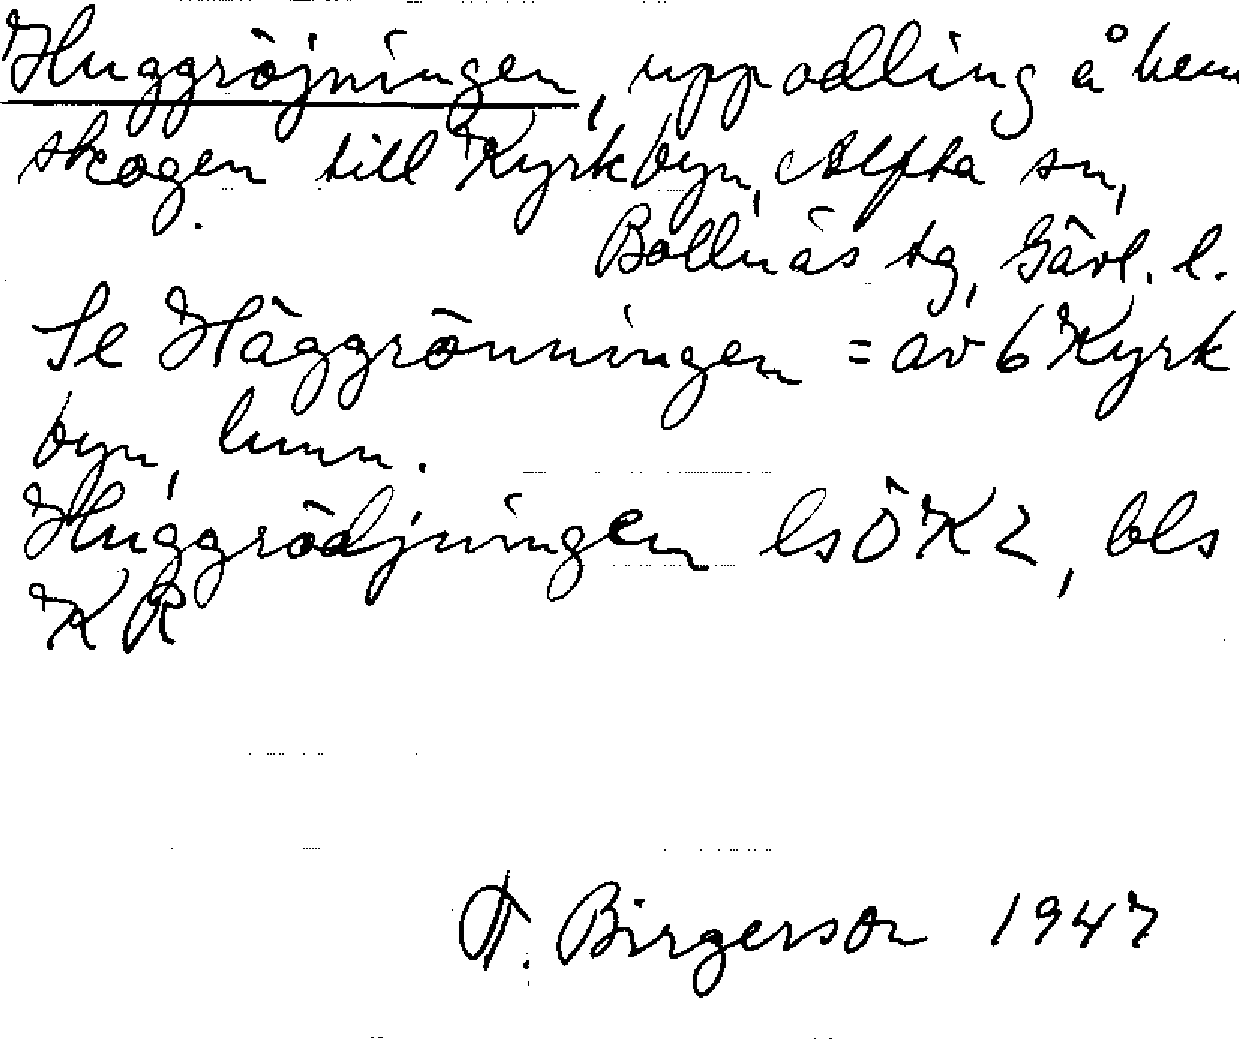 Huggröjningen, uppodling å hem
skogen till Kyrkbyn, Alfta sn,
Bollnäs tg, Gävl. l.
Se Häggrönningen = av 6 Kyrk
byn,
Huggrödjningen lsÖK2, bls
KR
T. Birgerson 1947